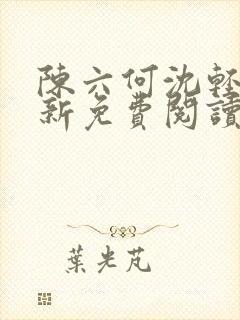 陳六何沈輕
新免費閱讀
葉光芃